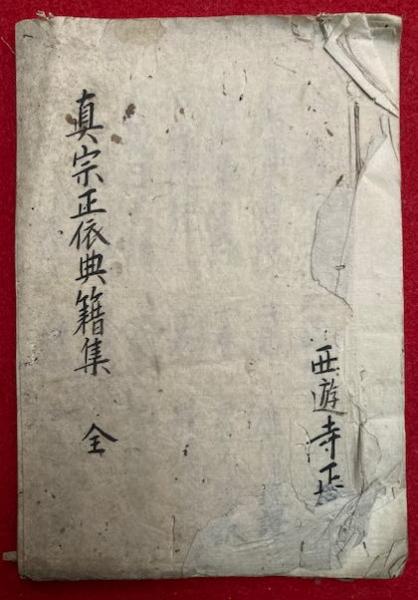 真宗正依典籍集 全
西遊寺